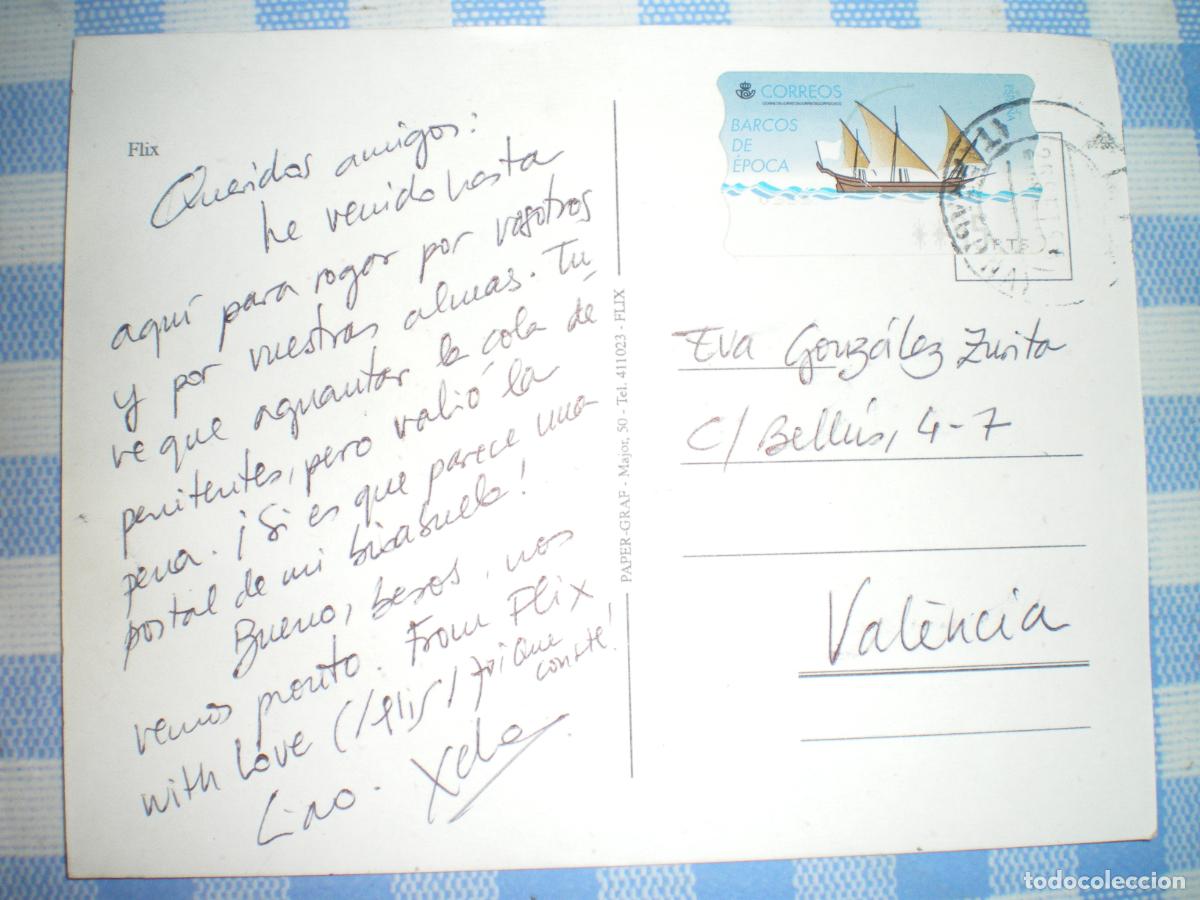 Flix
Queridos amigos:
he venido hasta
aquí para rogar por vosotros
y por vuestras almas. Tu-
ve que aguantar la cola de
penitentes, pero valió la
pena. ¡Si es que parece una
postal de mi bisabuela!
Bueno, besos, nos
vemos pronto. From Flix
with Love (/fliʃ/) que
conste!
Ciao. Xelo
PAPER-GRAF - Major, 50 - Tel. 411023 - FLIX
CORREOS
ESPAÑA
BARCOS
DE
ÉPOCA
Eva González Zurita
C/ Bellús, 4-7
València
todocoleccion